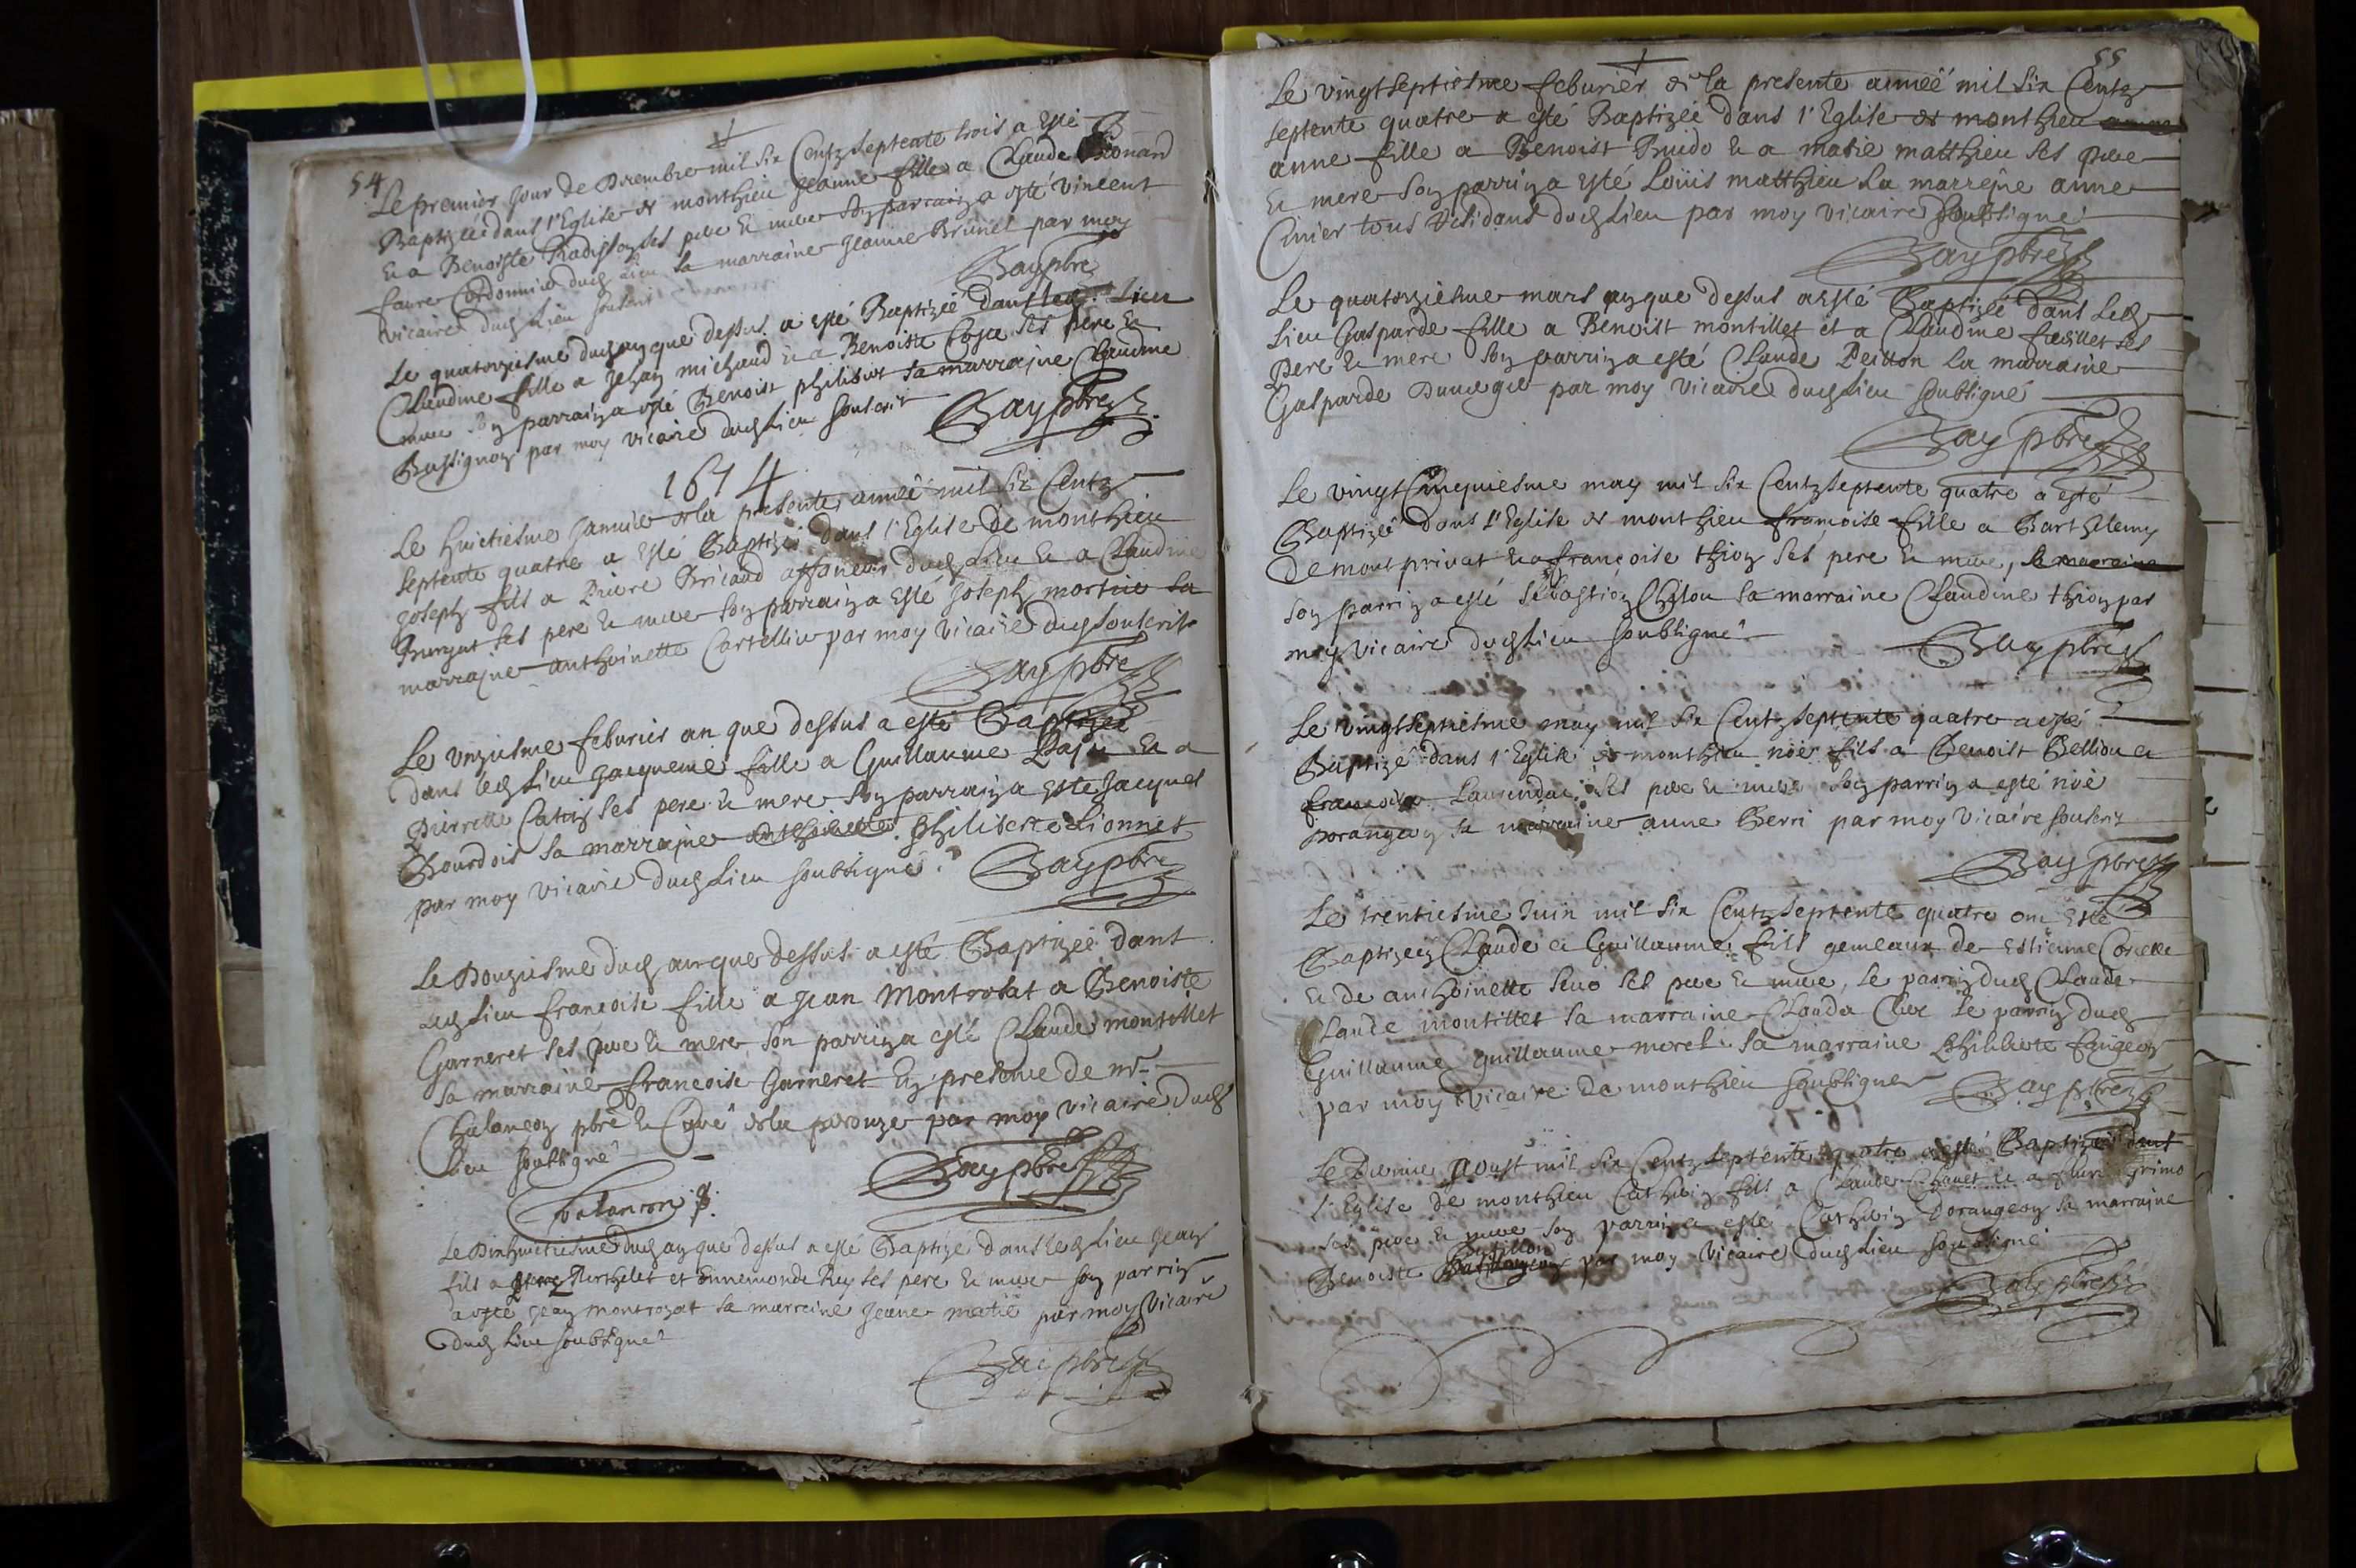 54
Le premier jour de Decembre mil six Centz septente trois a esté
Baptizée dans l'Eglise de monthieu Jeanne fille a Claude
et a Benoiste Radisson ses pere et mere son parrain a esté vincent
faure Cordonnier dud lieu sa marraine Jeanne Brunel par moy
vicaire dud Lieu soubsit
Bay pbre
Le quatorziesme dud an que dessus a esté Baptizée dans led. Lieu
Claudine fille a Jehan michaud et a Benoiste ses pere et
mere son parrain a esté Benoist philibert sa marraine Claudine
Bussignon par moy vicaire dud Lieu souscrit
Bay pbre
1674
Le huictiesme Janvier de la presente année mil six Centz
septente quatre a esté Baptizé dans l'Eglise de monthieu
Joseph fils a Pierre Bricaud affaneur dud Lieu et a Claudine
ses pere et mere son parrain a esté Joseph mortier sa
marraine anthoinette Cartellier par moy vicaire dud souscrit
Bay pbre
Le unziesme feburier an que dessus a esté Baptizée
dans led Lieu Jacqueme fille a Guillaume et a
Pierrette ses pere et mere son parrain a esté Jacques
Bourdois sa marraine Philiberte Lionnet
par moy vicaire dud Lieu soubsigné
Bay pbre
Le Douziesme dud an que dessus a esté Baptizée dans
led Lieu francoise fille a Jean Montrosat a Benoiste
Garneret ses pere et mere son parrin a esté Claude montillet
sa marraine francoise Garneret En presence de mr
Chalancon pbre et Curé de la perouze par moy vicaire dud
Lieu soubsigné
Chalancon
Bay pbre
Le Dixhuictiesme dud an que dessus a esté Baptizé dans led Lieu Jean
fils a Berthelet et Ennemonde Rey ses pere et mere son parrin
a esté Jean montrozat sa marraine Jeanne matié par moy Vicaire
dud Lieu soubsigné
Bai pbre
55
Le vingt septiesme feburier de la presente année mil six Centz
septente quatre a esté Baptizée dans l'Eglise de monthieu
anne fille a Benoist Buido et a marie matthieu ses pere
et mere son parrin a esté Loüis matthieu La marreine anne
Cinier tous residans dud Lieu par moy vicaire soubsigné
Bay pbre
Le quatorziesme mars an que dessus a esté Baptizée dans Led
Lieu Gasparde fille a Benoist montillet et a Claudine ses
pere et mere son parrin a esté Claude Peillon La marraine
Gasparde par moy vicaire dud Lieu soubsigné
Bay pbre
Le vingt Cinquiesme may mil six Centz septente quatre a esté
Baptizée dans l'Eglise de monthieu francoise fille a Barthelemy
de montprivat et a francoise thion ses pere et mere, la marraine
son parrin a esté Sebastien Chilou sa marraine Claudine thion par
moy vicaire dud Lieu soubsigné
Bay pbre
Le vingt septiesme may mil six Centz septente quatre a esté
Baptizé dans l'Eglise de monthieu noé fils a Benoist Bellion et
francoise ses pere et mere son parrin a esté noé
Dorangeon sa marraine anne Berri par moy vicaire souscrit
Bay pbre
Le trentiesme Juin mil six Centz septente quatre ont esté
Baptizez Claude et Guillaume fils gemeaux de Estienne
et de anthoinette ses pere et mere, le parrin dud Claude
Claude montillet sa marraine Clauda le parrin dud
Guillaume Guillaume morel sa marraine Philiberte faugeon
par moy vicaire de monthieu soubsigné
Bay pbre
Le Aoust mil six Centz septente quatre a esté Baptizé dans
l'Eglise de monthieu Cathelin fils a Claude Chavet et a Grimo
ses pere et mere son parrin a esté Cathelin Dorangeon sa marraine
Benoiste Batillon par moy vicaire dud Lieu soubsigné
Bay pbre